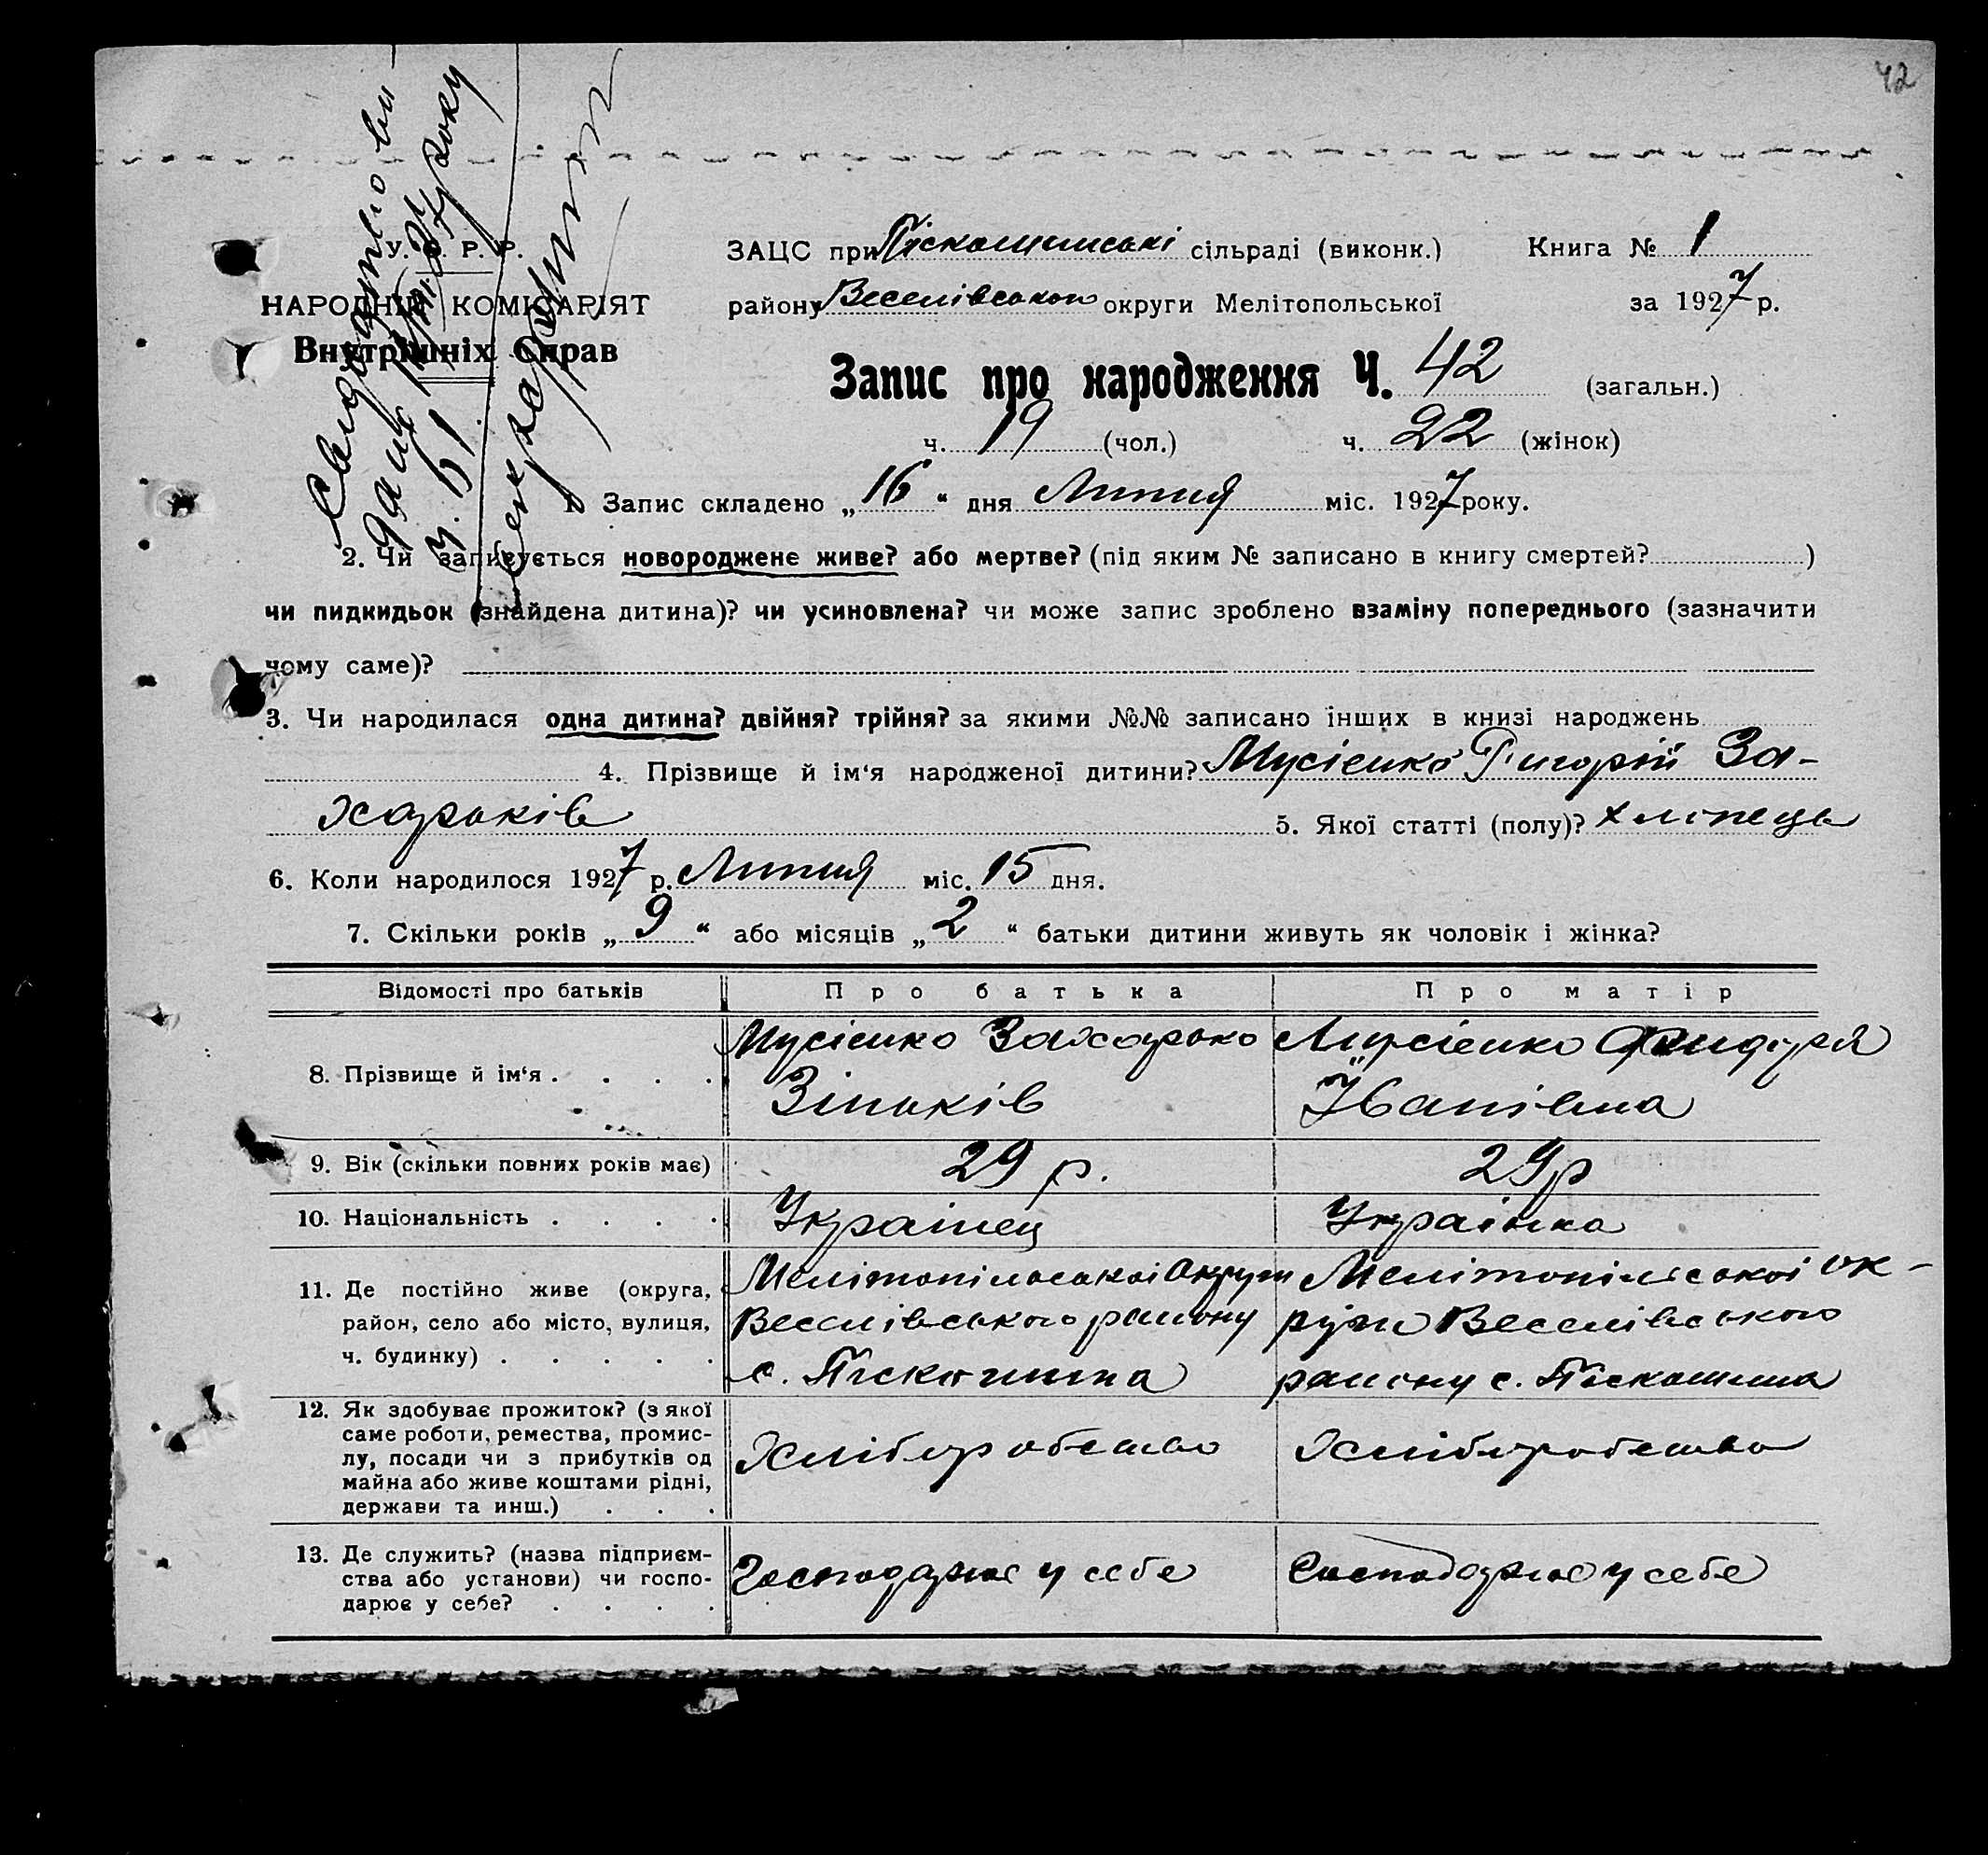 42
У. С. Р. Р.
НАРОДНІЙ КОМІСАРІЯТ
Внутрішніх Справ
ЗАЦС при Піскошинські сільраді (виконк.) Книга № 1
району Веселівського округи Мелітопольської за 1927 р.
Запис про народження Ч. 42 (загальн.)
ч. 19 (чол.) ч. 22 (жінок)
1. Запис складено „16“ дня Липня міс. 1927 року.
2. Чи записується новороджене живе? або мертве? (під яким № записано в книгу смертей? )
чи пидкидьок (знайдена дитина)? чи усиновлена? чи може запис зроблено взаміну попереднього (зазначити
чому саме)?
3. Чи народилася одна дитина? двійня? трійня? за якими №№ записано інших в книзі народжень
4. Прізвище й ім‘я народженої дитини? Мусіенко Григорій За-
харьків 5. Якої статті (полу)? хлопець
6. Коли народилося 1927 р. Липня міс. 15 дня.
7. Скільки років „9“ або місяців „2“ батьки дитини живуть як чоловік і жінка?
Відомості про батьків Про батька Про матір
8. Прізвище й ім‘я . . . . Мусіенко Захарько Мусіенко
Зіньків Іванівна
9. Вік (скільки повних років має) 29 р. 29 р
10. Національність . . . . Украінец Украінка
11. Де постійно живе (округа, Мелітопільськоі Округи Мелітопільськоі ок-
район, село або місто, вулиця, Веселівського району руги Веселівського
ч. будинку) . . . . . с. Піскошина району с. Піскошина
12. Як здобуває прожиток? (з якої
саме роботи, ремества, промис-
лу, посади чи з прибутків од Хліборобство Хліборобство
майна або живе коштами рідні,
держави та инш.) . . .
13. Де служить? (назва підприєм-
ства або установи) чи госпо- Господарює у себе Господарює у себе
дарює у себе? . . . .